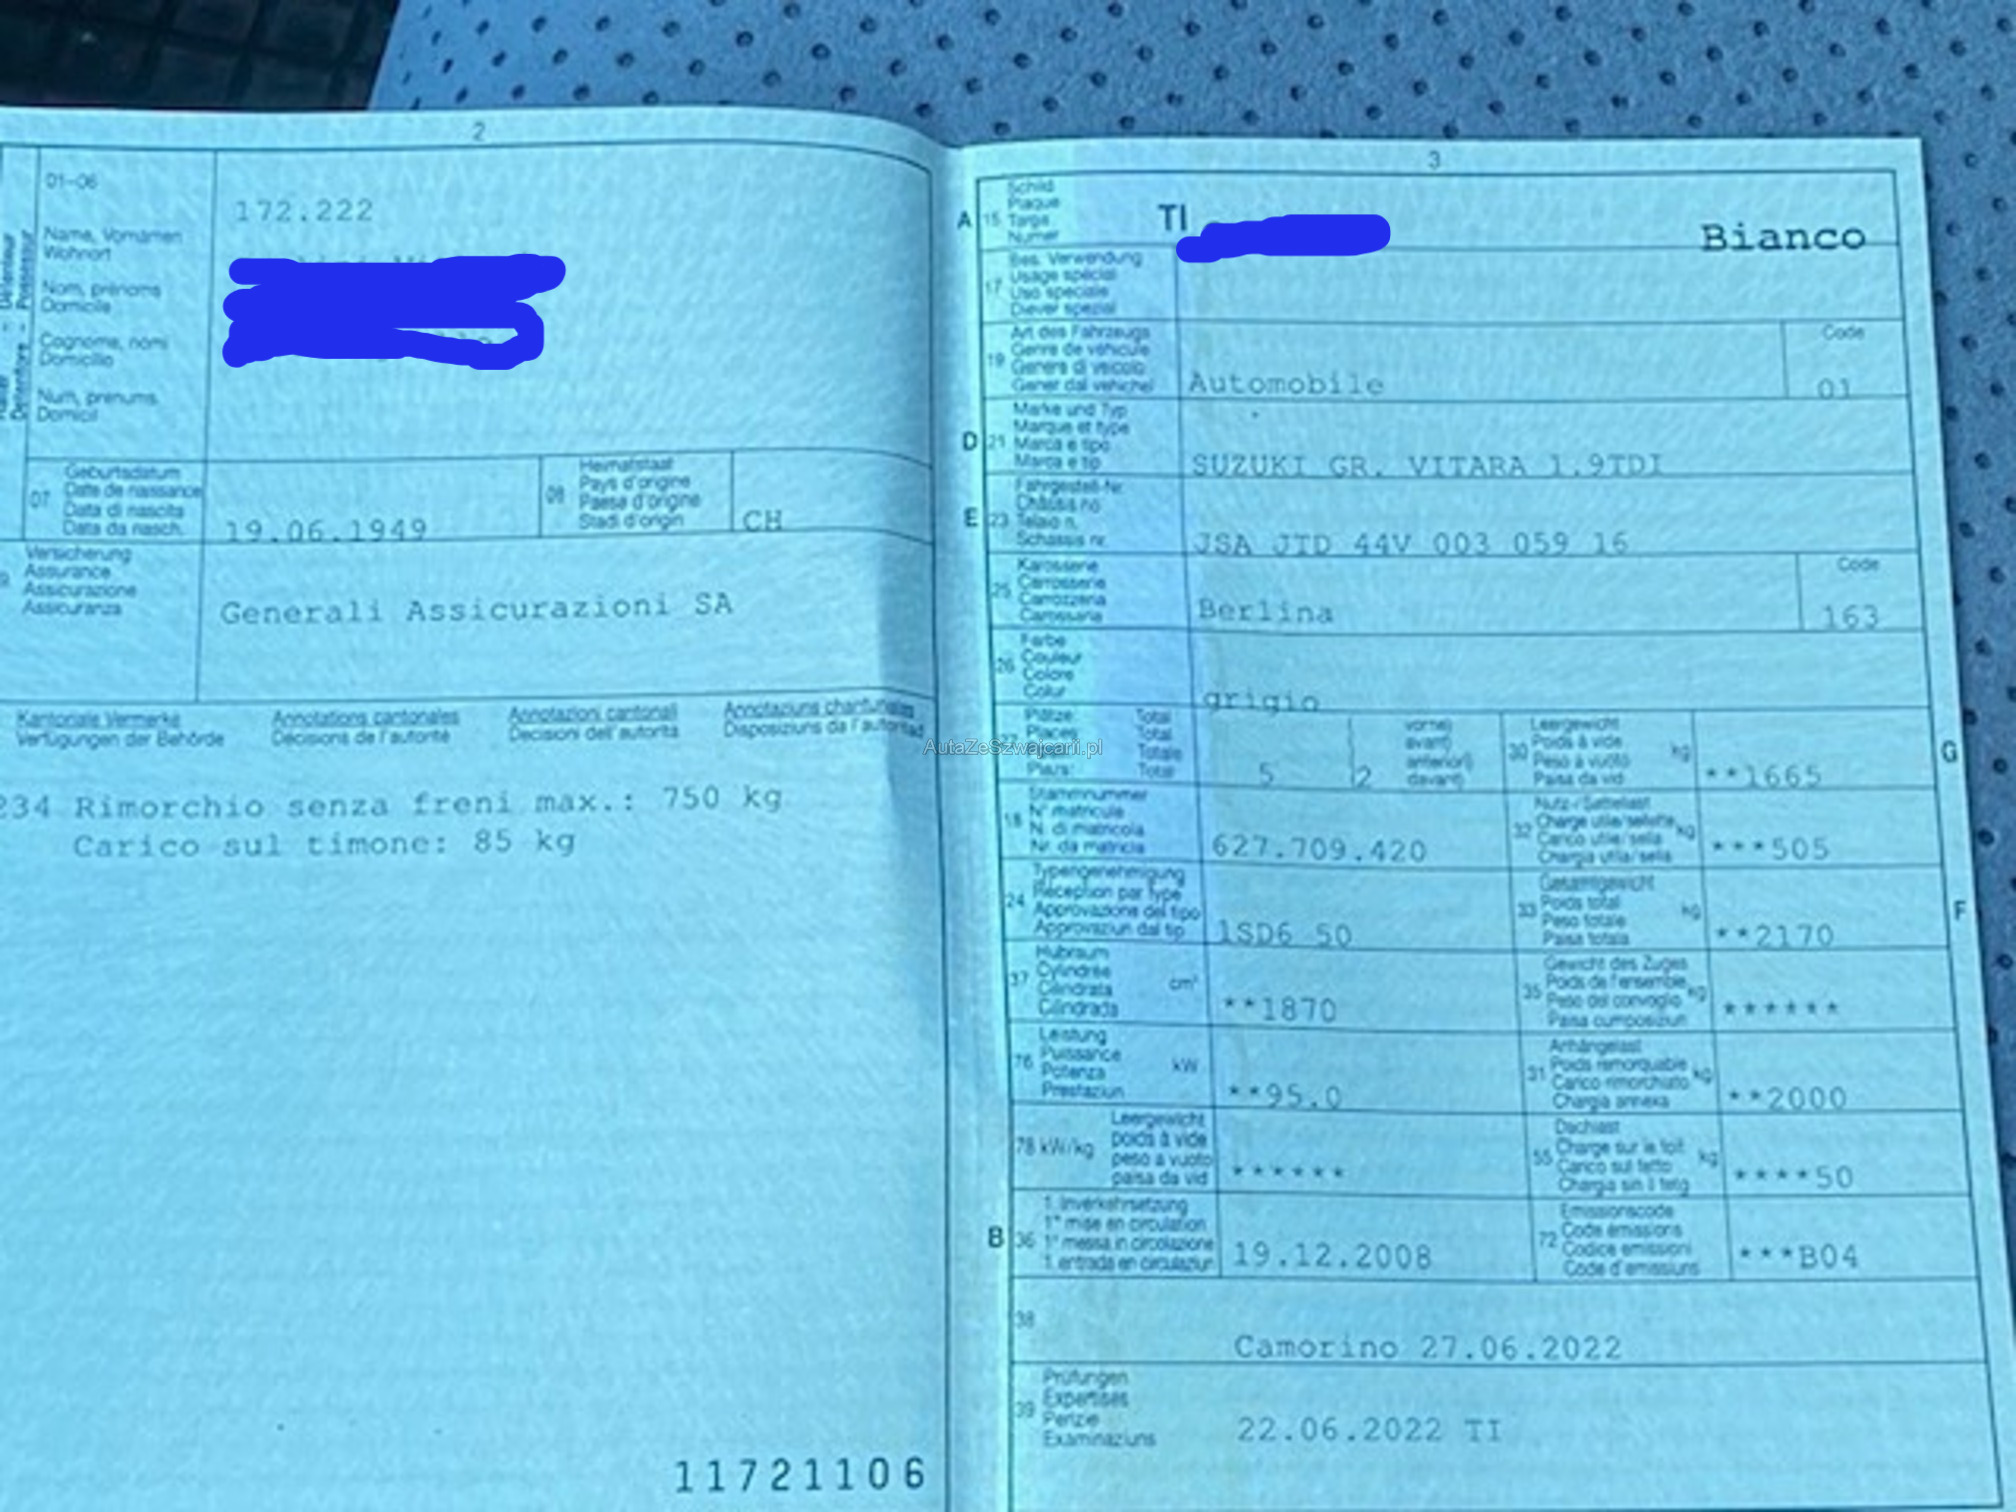 2
01-06
172.222
Name, Vornamen
Wohnort
Nom, prénoms
Domicile
Cognome, nomi
Domicilio
Num, prenums
Domicil
Détenteur
Detentore - Possessur
07
Geburtsdatum
Date de naissance
Data di nascita
Data da nasch.
19.06.1949
08
Heimatstaat
Pays d'origine
Paese d'origine
Stadi d'origin
CH
Versicherung
Assurance
Assicurazione
Assicuranza
Generali Assicurazioni SA
Kantonale Vermerke
Verfügungen der Behörde
Annotations cantonales
Décisions de l'autorité
Annotazioni cantonali
Decisioni dell'autorità
Annotaziuns chantunalas
Disposiziuns da l'autoritad
234 Rimorchio senza freni max.: 750 kg
Carico sul timone: 85 kg
11721106
3
A 15
Schild
Plaque
Targa
Numer
TI
Bianco
17
Bes. Verwendung
Usage spécial
Uso speciale
Diever spezial
19
Art des Fahrzeugs
Genre de véhicule
Genere di veicolo
Gener dal vehichel
Automobile
Code
01
D 21
Marke und Typ
Marque et type
Marca e tipo
Marca e tip
SUZUKI GR. VITARA 1.9TDI
E 23
Fahrgestell-Nr.
Châssis no
Telaio n.
Schassis nr.
JSA JTD 44V 003 059 16
25
Karosserie
Carrosserie
Carrozzeria
Carossaria
Berlina
Code
163
26
Farbe
Couleur
Colore
Colur
grigio
27
Plätze: Total
Places: Total
Totale
Plazs: Total
5
2
vorne)
avant)
anteriori)
davant)
G
30
Leergewicht
Poids à vide
Peso a vuoto
Paisa da vid
kg
**1665
18
Stammnummer
N° matricule
N. di matricola
Nr. da matricla
627.709.420
32
Nutz-/Sattellast
Charge utile/sellette
Carico utile/sella
Chargia utila/sella
kg
***505
24
Typengenehmigung
Réception par type
Approvazione del tipo
Approvaziun dal tip
1SD6 50
33
Gesamtgewicht
Poids total
Peso totale
Paisa totala
kg
**2170
F
37
Hubraum
Cylindrée
Cilindrata
Cilindrada
cm³
**1870
35
Gewicht des Zuges
Poids de l'ensemble
Peso del convoglio
Paisa cumposiziun
kg
******
76
Leistung
Puissance
Potenza
Prestaziun
kW
**95.0
31
Anhängelast
Poids remorquable
Carico rimorchiato
Chargia annexa
kg
**2000
78 kW/kg
Leergewicht
poids à vide
peso a vuoto
paisa da vid
******
55
Dachlast
Charge sur le toit
Carico sul tetto
Chargia sin il tetg
kg
****50
B 36
1. Inverkehrsetzung
1re mise en circulation
1a messa in circolazione
1. entrada en circulaziun
19.12.2008
72
Emissionscode
Code émissions
Codice emissioni
Code d'emissiuns
***B04
38
Camorino 27.06.2022
39
Prüfungen
Expertises
Perizie
Examinaziuns
22.06.2022 TI
AutaZeSzwajcarii.pl